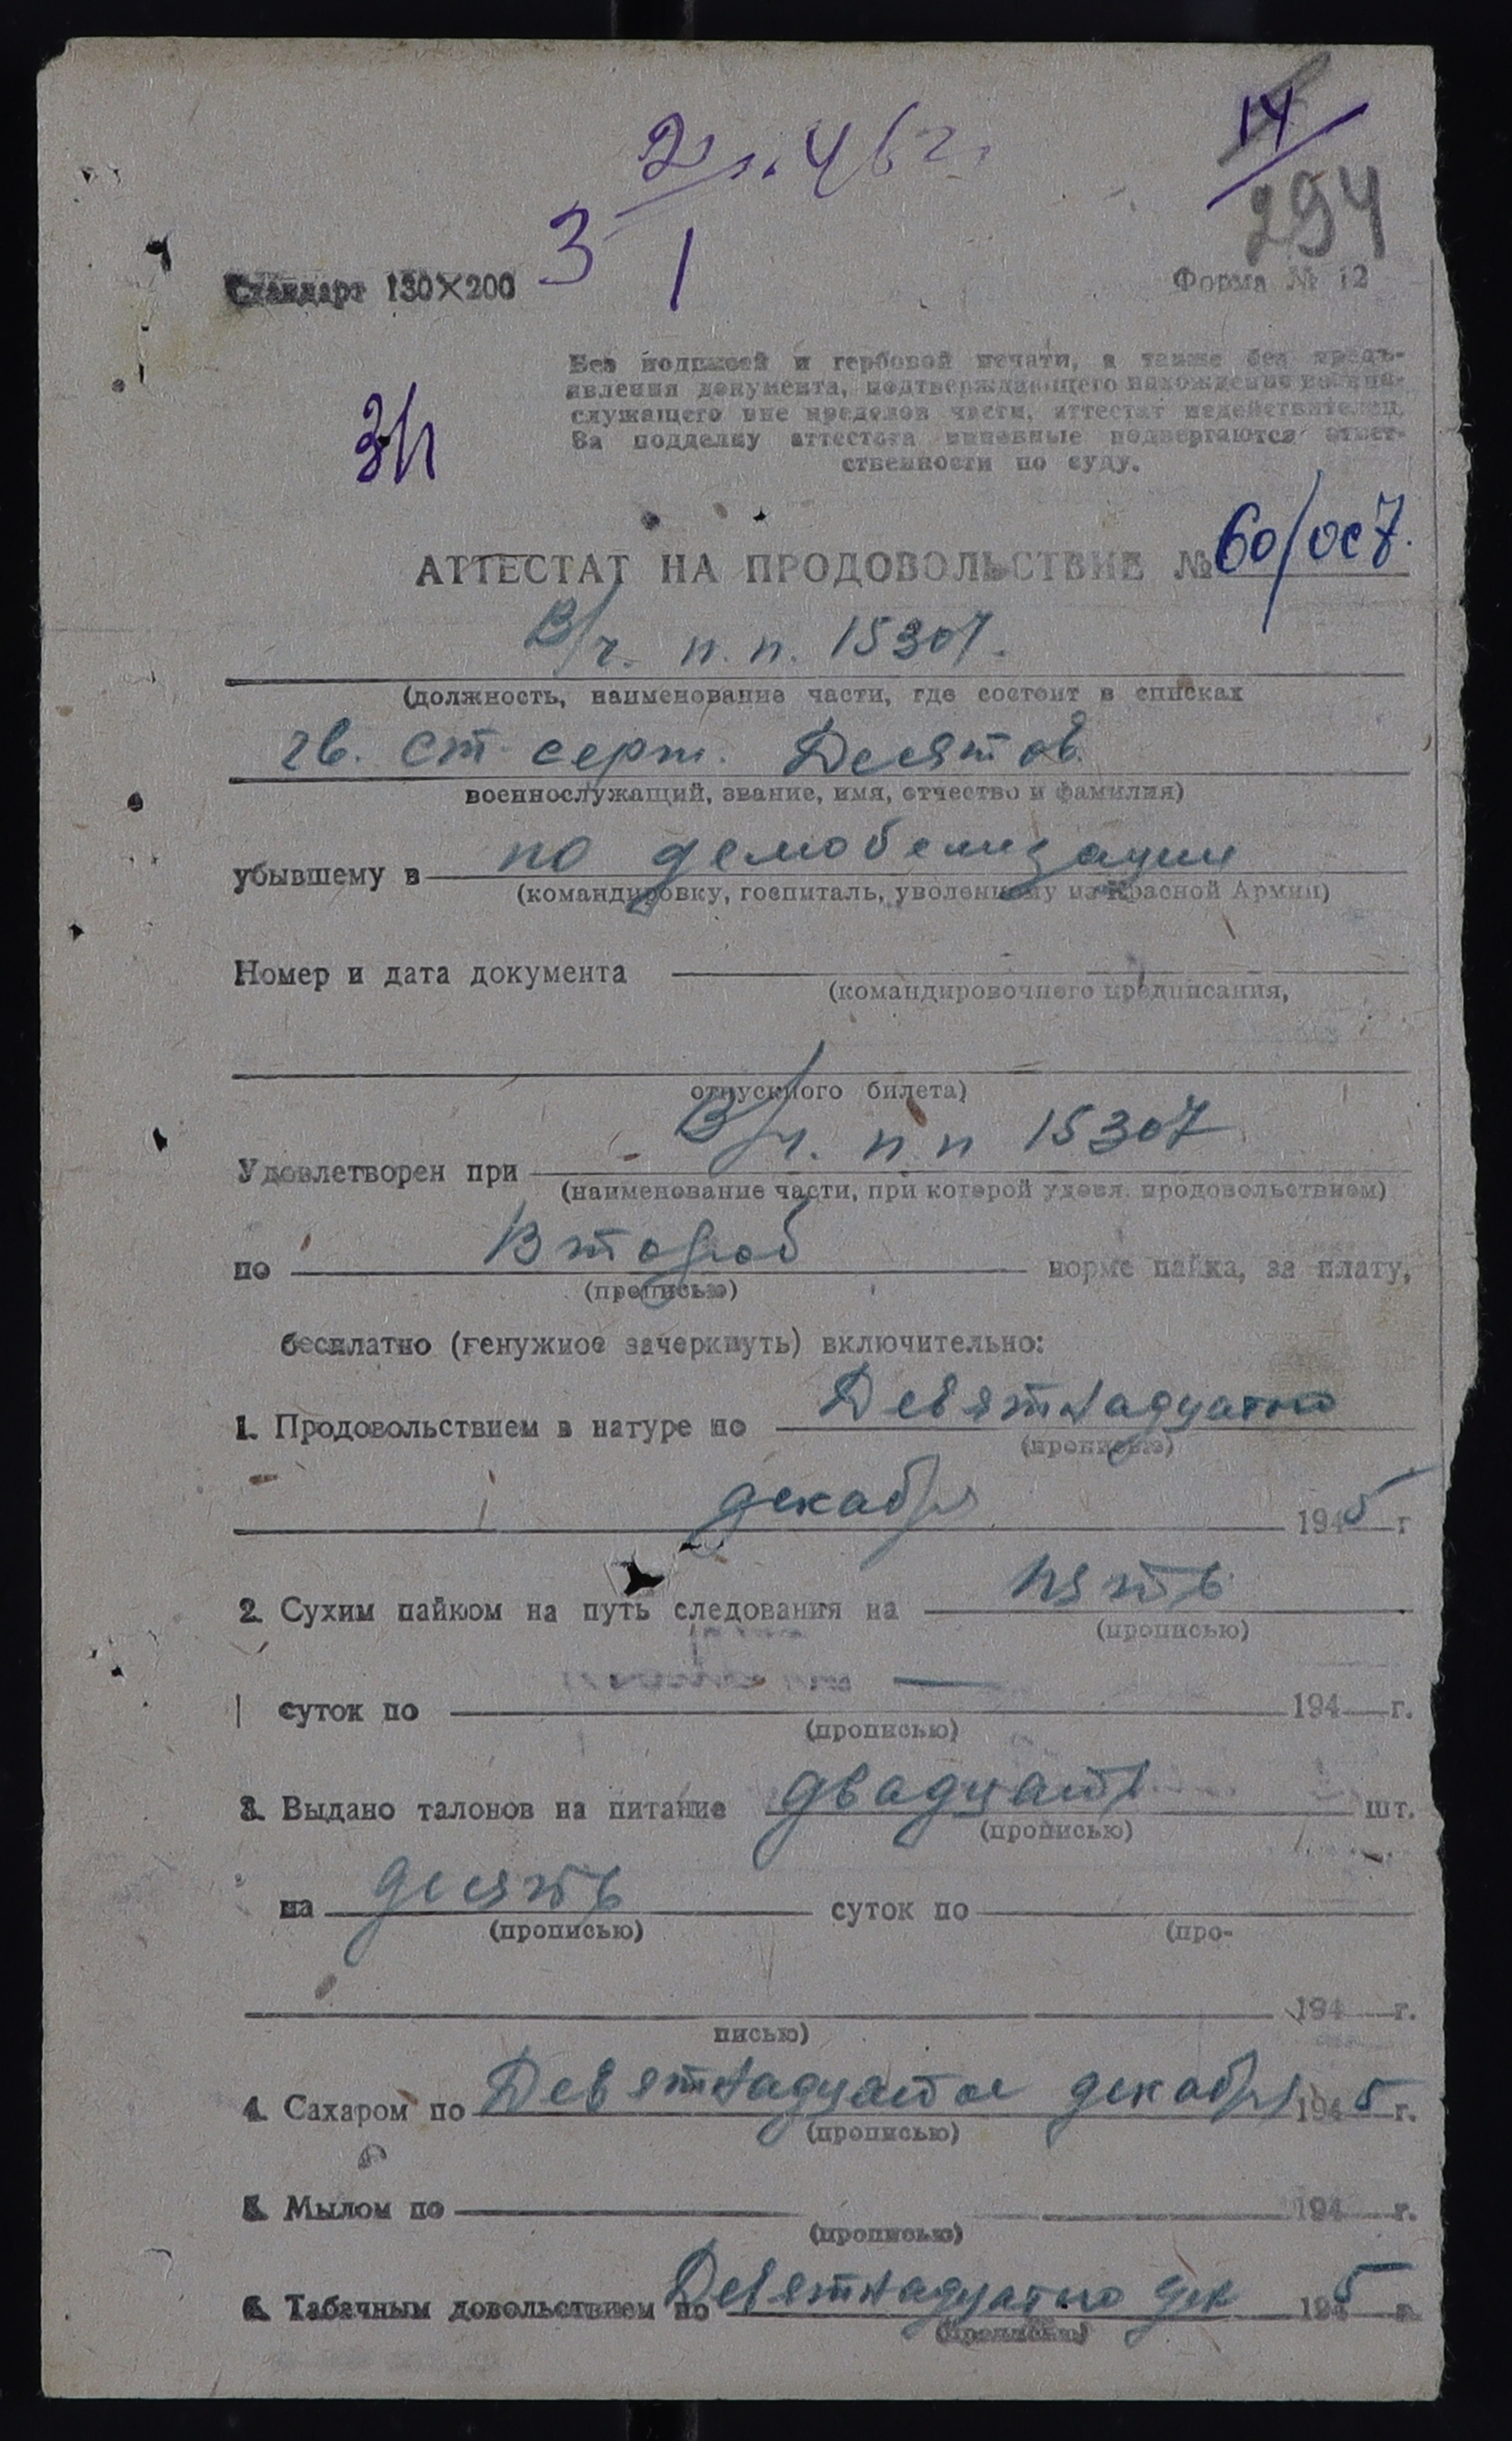 14
294
Стандарт 130×200
Форма № 12
Без подписей и гербовой печати, а также без предъ-
явления документа, подтверждающего нахождение военно-
служащего вне пределов части, аттестат недействителен.
За подделку аттестата виновные подвергаются ответ-
ственности по суду.
АТТЕСТАТ НА ПРОДОВОЛЬСТВИЕ № 60/
В/ч. п.п. 15307.
(должность, наименование части, где состоит в списках
гв. ст. серж. Десятов
военнослужащий, звание, имя, отчество и фамилия)
убывшему в по демобелизации
(командировку, госпиталь, уволенному из Красной Армии)
Номер и дата документа
(командировочного предписания,
отпускного билета)
Удовлетворен при В/ч. п.п 15307
(наименование части, при которой удовл. продовольствием)
по Второй норме пайка, за плату,
(прописью)
бесплатно (ненужное зачеркнуть) включительно:
1. Продовольствием в натуре по Девятнадцатое
(прописью)
декабря 1945 г
2. Сухим пайком на путь следования на пять
(прописью)
суток по — 194 г.
(прописью)
3. Выдано талонов на питание двадцать шт.
(прописью)
на десять суток по
(прописью) (про-
194 г.
писью)
4. Сахаром по Девятнадцатое декабря 1945 г.
(прописью)
5. Мылом по 194 г.
(прописью)
6. Табачным довольствием по Девятнадцатое дек 1945 г.
(прописью)